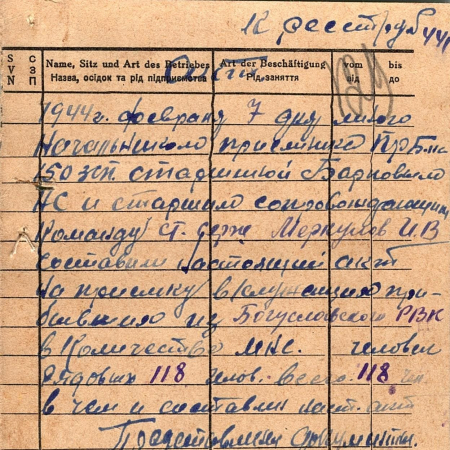 К реестру б/44г
S V N
С З П
Name, Sitz und Art des Betriebes
Назва, осідок та рід підприємства
Art der Beschäftigung
Рід заняття
vom
від
bis
до
Акт
1944г. февраля 7 дня мною
Начальником приемника
150 зсп старшиной Барковым
и старшим сопровождающим
Команду ст. серж Меркулов И В
составили настоящий акт
на приемку в/служащих при-
бывших из Богуславского РВК
в количестве мнс. человек
Рядовых 118 челов. всего 118 чел.
в чем и составлен наст. акт
Представлены документы.